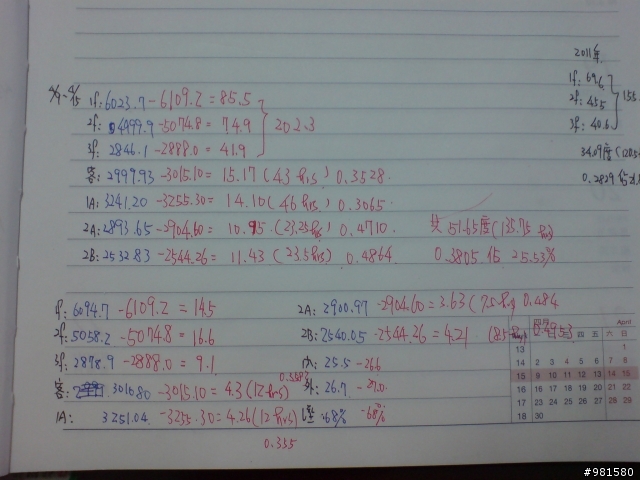 2011年
4/9~4/15 1f: 6023.7-6109.2=85.5
1f: 69.6
2f: 4999.9-5074.8=74.9
202.3
2f: 45.5
155.
3f: 2846.1-2888.0=41.9
3f: 40.6
34.09度(120.5
客: 2999.93-3015.10=15.17(43 hrs) 0.3528
1A: 3241.20-3255.30=14.10(46 hrs) 0.3065
2A: 2893.65-2904.60=10.95(23.25hrs) 0.4710
共 51.65度(135.75 hrs)
2B: 2532.83-2544.26=11.43(23.5hrs) 0.4864
0.3805 倍 25.53%
1f: 6094.7-6109.2=14.5
2A: 2900.97-2904.60=3.63(7.5hrs) 0.484
2f: 5058.2-5074.8=16.6
2B: 2540.05-2544.26=4.21 (8.5 hrs) 0.4953
3f: 2878.9-2888.0=9.1
內: 25.5-26.6
客: 3010.80-3015.10=4.3(12hrs)
外: 26.7
1A: 3251.04-3255.30=4.26(12hrs)
68%-68%
0.355
四月 April
四 五 六 日
13 1
14 2 3 4 5 6 7 8
15 9 10 11 12 13 14 15
16 16 17 18 19 20 21 22
17 23 24 25 26 27 28 29
18 30
#981580